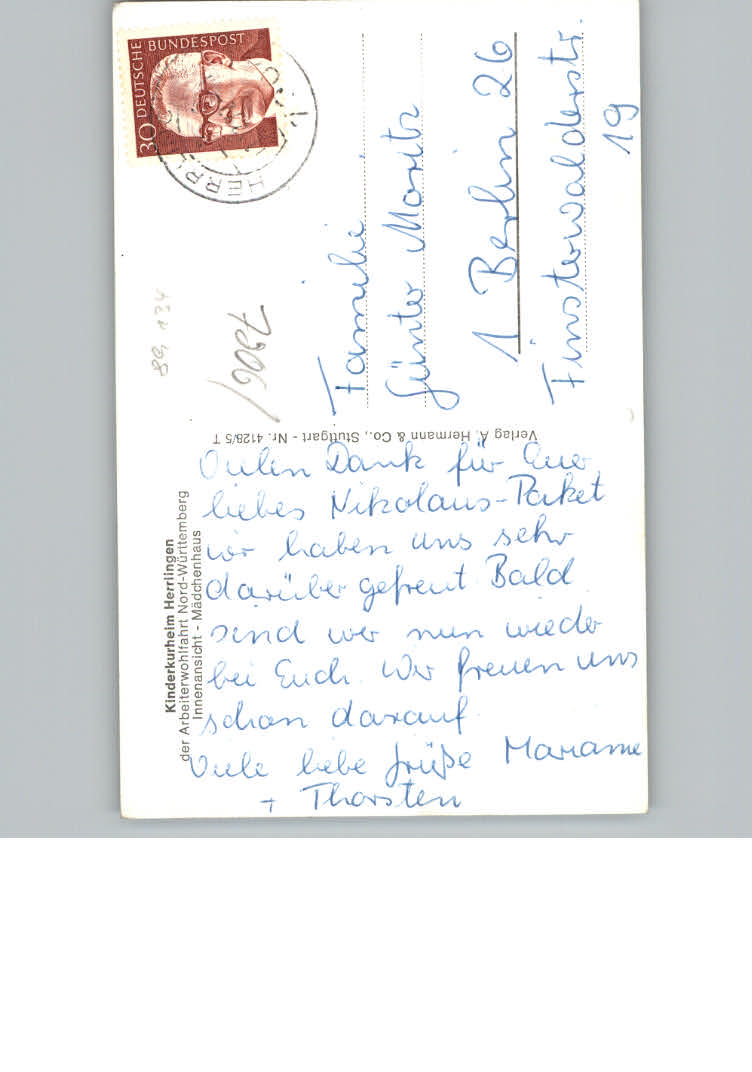 Kinderkurheim Herrlingen
der Arbeiterwohlfahrt Nord-Württemberg
Innenansicht - Mädchenhaus
Vielen Dank für Euer
liebes Nikolaus-Paket
wir haben uns sehr
darüber gefreut. Bald
sind wir nun wieder
bei Euch. Wir freuen uns
schon darauf.
Viele liebe Grüße Marianne
+ Thorsten
Verlag A. Hermann & Co., Stuttgart - Nr. 4128/5 T
30 DEUTSCHE BUNDESPOST
Familie
Günter Moritz
1 Berlin 26
Finsterwalderstr.
19
7906/
89 134